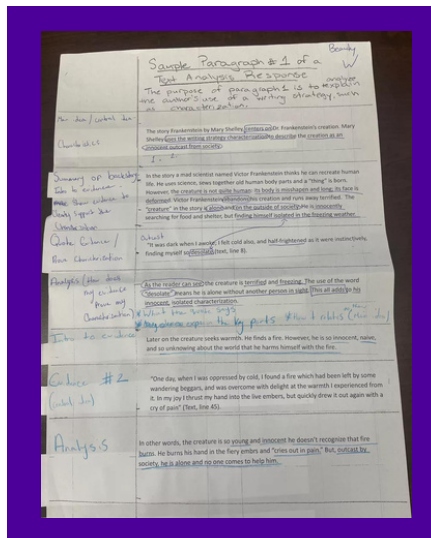 Beandy
Sample Paragraph # 1 of a
Text Analysis Response
The purpose of paragraph 1 is to explain
analyze
one author's use of a writing strategy, such
as characterization.
Main idea/control idea
The story Frankenstein by Mary Shelley centers on Dr. Frankenstein's creation. Mary
Shelley uses the writing strategy characterization to describe the creation as an
innocent outcast from society.
Summary of backstory
In the story a mad scientist named Victor Frankenstein thinks he can recreate human
life. He uses science, sews together old human body parts and a "thing" is born.
However, the creature is not quite human: its body is misshapen and long; its face is
deformed. Victor Frankenstein abandons his creation and runs away terrified. The
"creature" in the story is alone and in the outside of society. He is innocently
searching for food and shelter, but finding himself isolated in the freezing weather.
Quote Evidence/
"It was dark when I awoke; I felt cold also, and half-frightened as it were instinctively,
finding myself so desolate (Text, line 8).
Analysis/
As the reader can see the creature is terrified and freezing. The use of the word
"desolate" means he is alone without another person in sight. This all adds to his
innocent, isolated characterization.
Intro to evidence
Later on the creature seeks warmth. He finds a fire. However, he is so innocent, naive,
and so unknowing about the world that he harms himself with the fire.
Evidence #2
"One day, when I was oppressed by cold, I found a fire which had been left by some
wandering beggars, and was overcome with delight at the warmth I experienced from
it. In my joy I thrust my hand into the live embers, but quickly drew it out again with a
cry of pain" (Text, line 45).
Analysis
In other words, the creature is so young and innocent he doesn't recognize that fire
burns. He burns his hand in the fiery embers and "cries out in pain." But, outcast by
society, he is alone and no one comes to help him.